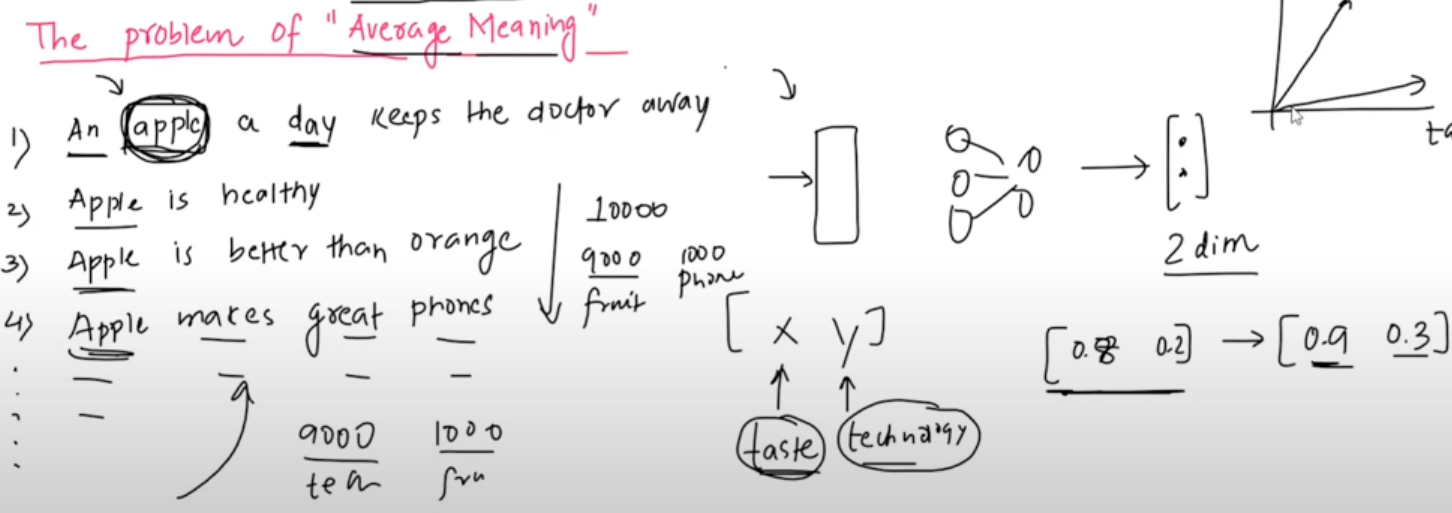 The problem of "Average Meaning"
1) An apple a day keeps the doctor away
2) Apple is healthy
3) Apple is better than orange
4) Apple makes great phones
10000
9000 1000
fruit phone
9000 1000
[ x y ]
taste technology
2 dim
[0.8 0.2] → [0.9 0.3]